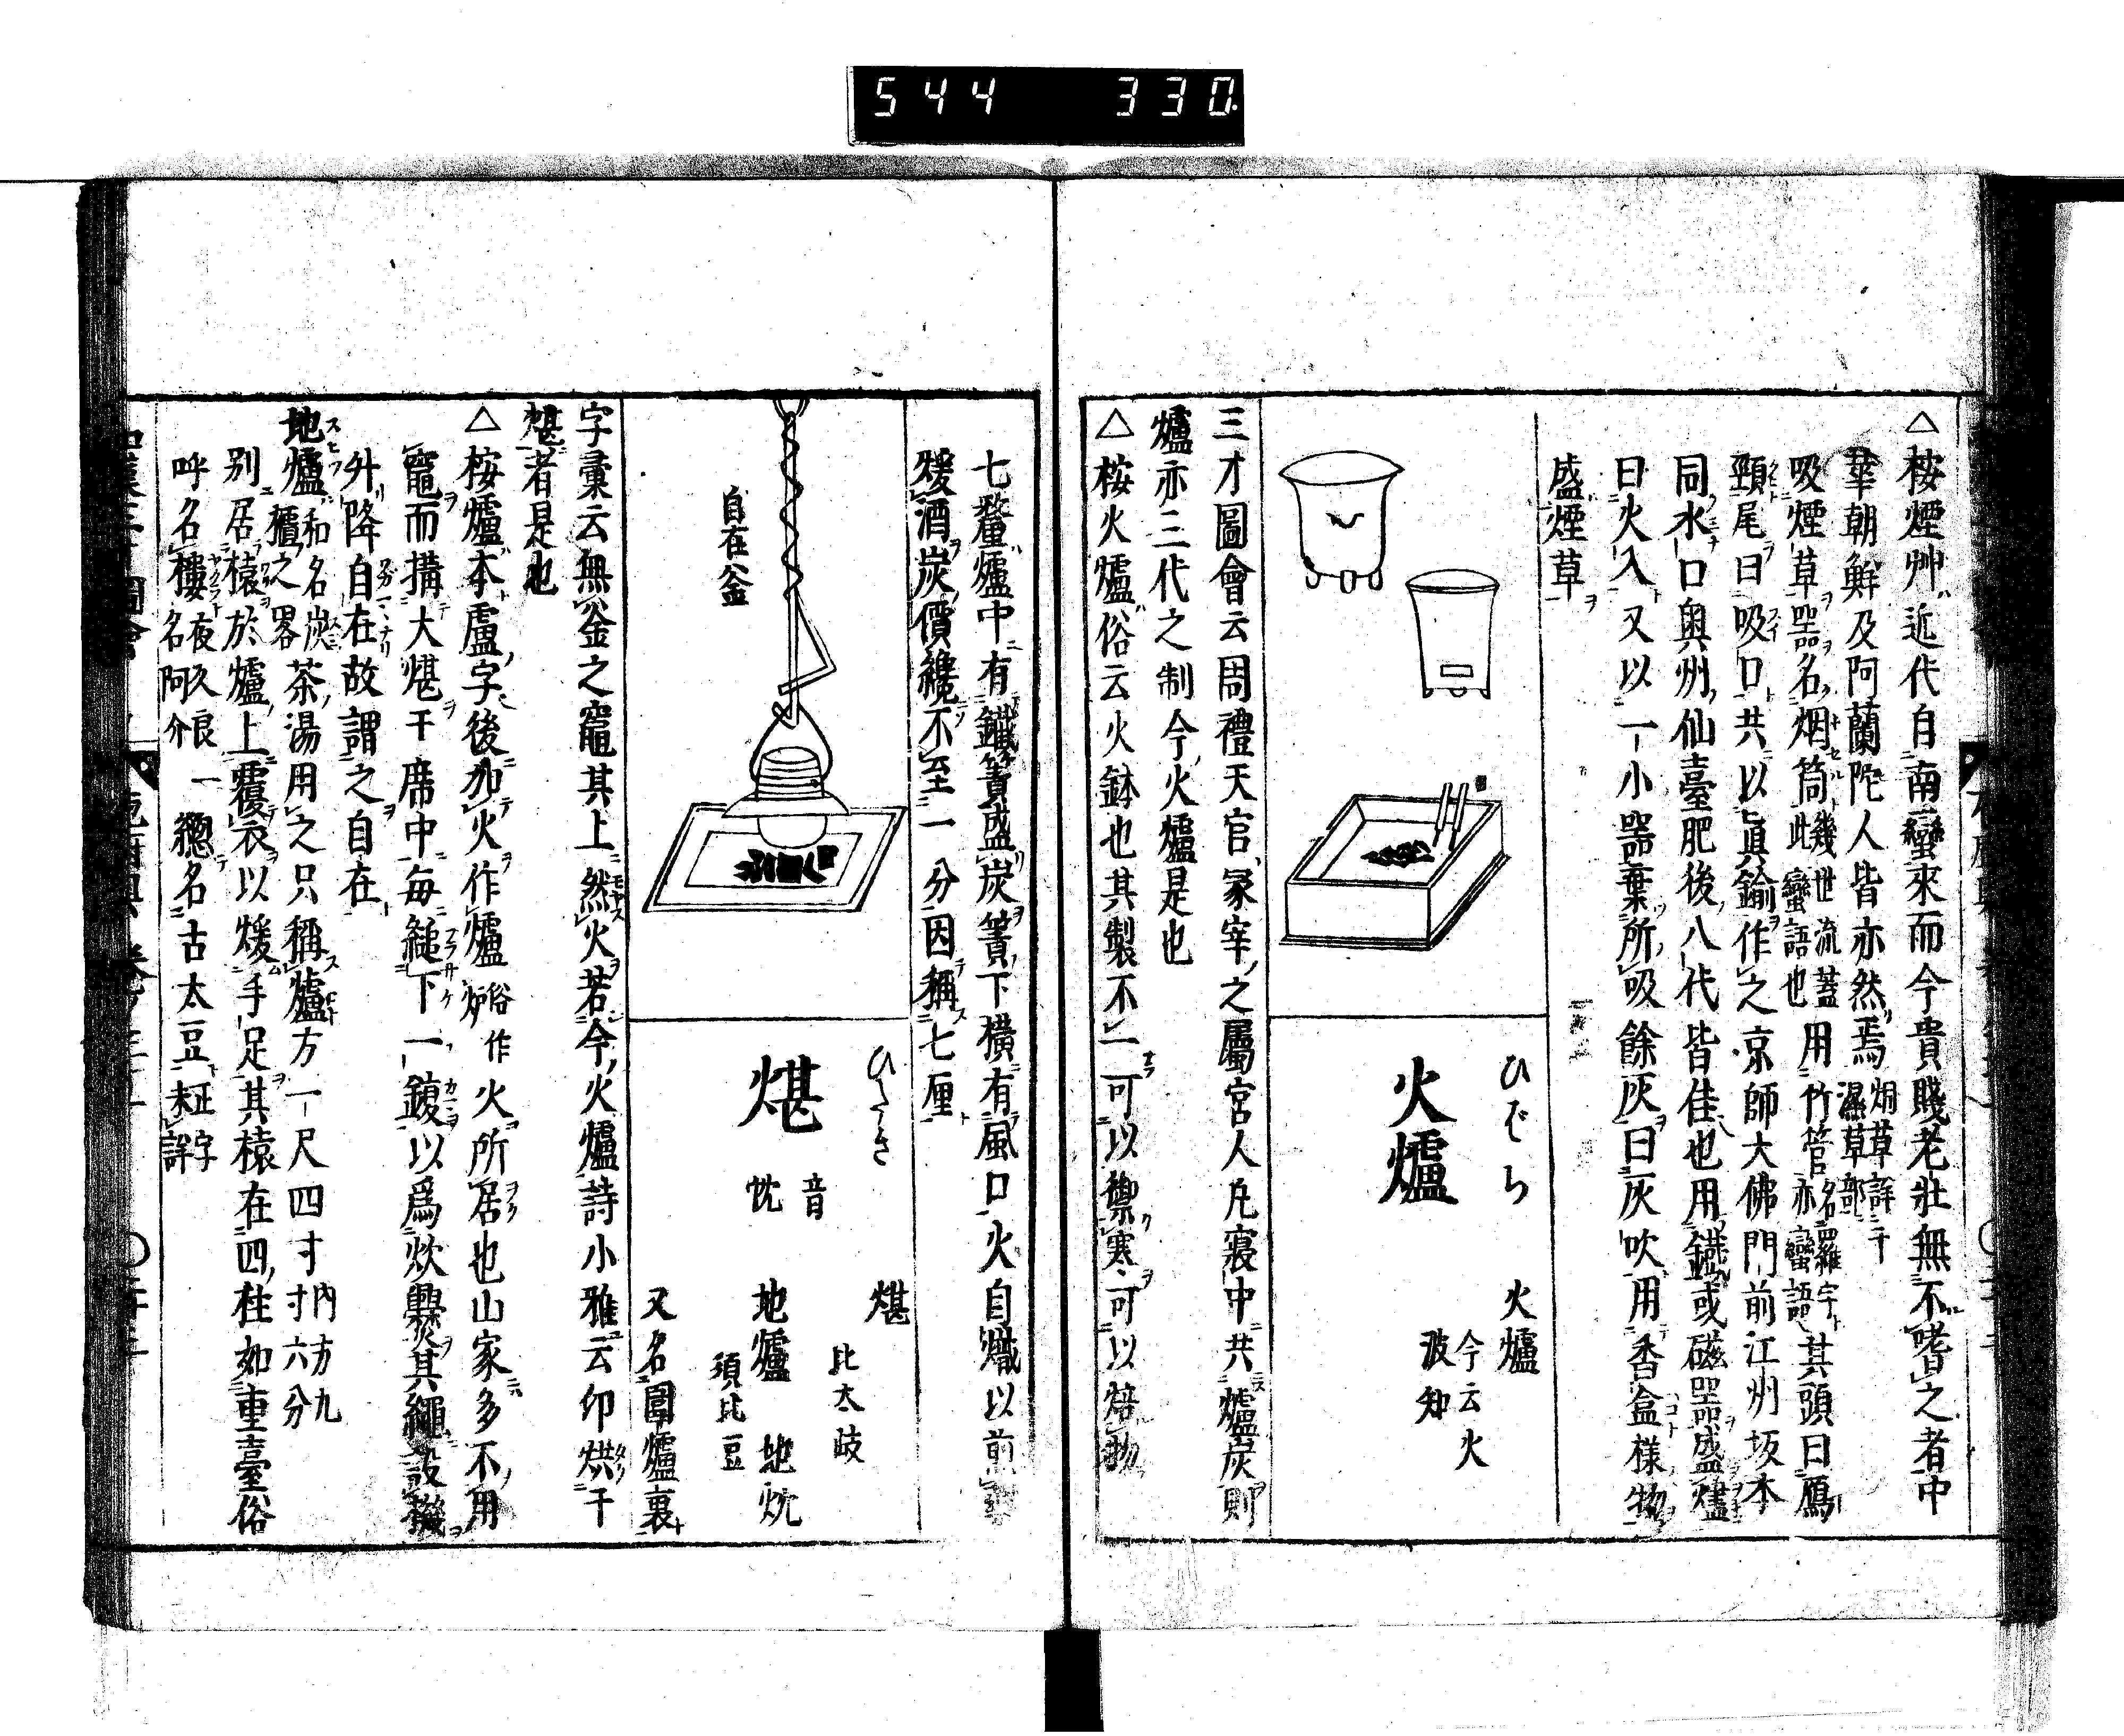 544 330
△按煙艸近代自南蠻來而今貴賤老壯無不嗜之者中
華朝鮮及阿蘭陀人皆亦然焉 烟草詳于濕草部
吸煙草噐名烟筒 幾世流蓋此蠻語也 用竹管 名羅宇亦蠻語 其頭曰鴈
頸尾曰吸口共以眞鍮作之京師大佛門前江州坂本
同水口奥州仙臺肥後八代皆佳也用鐵或磁噐盛燼
曰火入又以一小噐棄所吸餘灰曰灰吹用香盒樣物
盛煙草
ひばち
火爐
火爐
今云火
波知
三才圖會云周禮天官冢宰之屬宮人凡寢中共爐炭則
爐亦三代之制今火爐是也
△按火爐俗云火鉢也其製不一可以禦寒可以焙物
七釐爐中有鐵簀盛炭簀下横有風口火自熾以煎
煖酒炭價纔不至一分因稱七厘
自在釜
ひたき
煁
音
忱
煁
比太岐
地爐 地炕
須比豆
又名圍爐裏
字彙云無釜之竈其上然火若今火爐詩小雅云卬烘于
煁者是也
△按爐本盧字後加火作爐 俗作炉 火所居也山家多不用
竈而搆大煁于席中毎縋下一鍑以爲炊爨其繩設機
升降自在故謂之自在
地爐 和名炭櫃之畧 茶湯用之只稱爐方一尺四寸 内方九寸六分
別居榬於爐上覆衣以煖手足其榬在四柱如重臺俗
呼名樓 夜久良名阿介 一種名古太豆 正字未詳